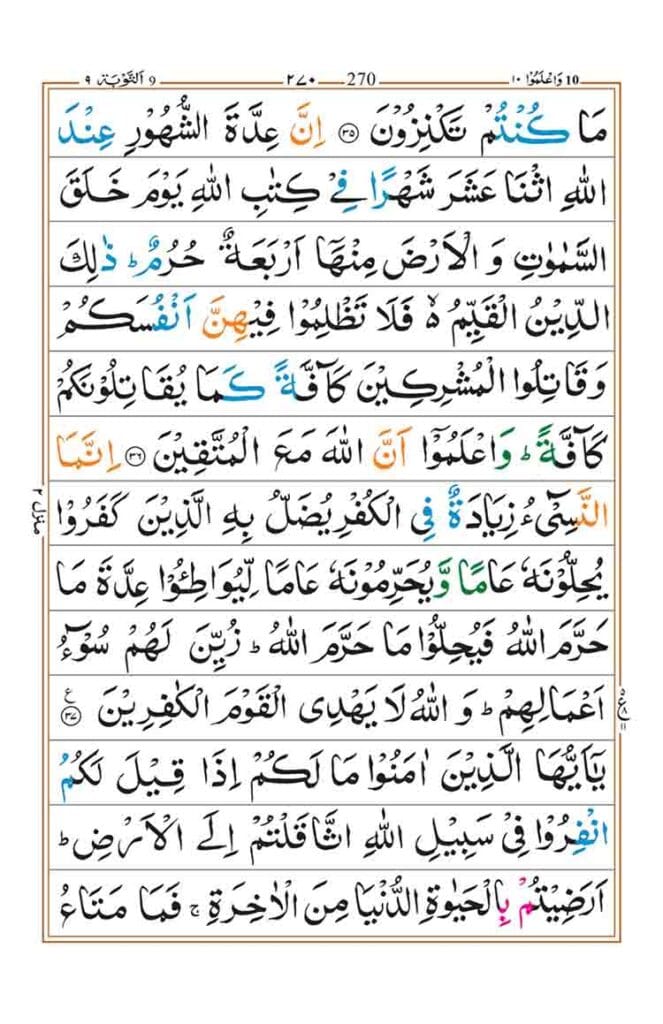 9 اَلتَّوْبَة ٩ ٢٧٠ 270 وَاعْلَمُوْٓا ١٠ 10
مَا كُنْتُمْ تَكْنِزُوْنَ ﴿٣٥﴾ اِنَّ عِدَّةَ الشُّهُوْرِ عِنْدَ
اللّٰهِ اثْنَا عَشَرَ شَهْرًا فِيْ كِتٰبِ اللّٰهِ يَوْمَ خَلَقَ
السَّمٰوٰتِ وَ الْاَرْضَ مِنْهَاۤ اَرْبَعَةٌ حُرُمٌ ؕ ذٰلِكَ
الدِّيْنُ الْقَيِّمُ ۙ۬ فَلَا تَظْلِمُوْا فِيْهِنَّ اَنْفُسَكُمْ
وَ قَاتِلُوا الْمُشْرِكِيْنَ كَآفَّةً كَمَا يُقَاتِلُوْنَكُمْ
كَآفَّةً ؕ وَ اعْلَمُوْۤا اَنَّ اللّٰهَ مَعَ الْمُتَّقِيْنَ ﴿٣٦﴾ اِنَّمَا
النَّسِيْٓءُ زِيَادَةٌ فِي الْكُفْرِ يُضَلُّ بِهِ الَّذِيْنَ كَفَرُوْا
منزل ٢
يُحِلُّوْنَهٗ عَامًا وَّ يُحَرِّمُوْنَهٗ عَامًا لِّيُوَاطِـُٔوْا عِدَّةَ مَا
حَرَّمَ اللّٰهُ فَيُحِلُّوْا مَا حَرَّمَ اللّٰهُ ؕ زُيِّنَ لَهُمْ سُوْٓءُ
اَعْمَالِهِمْ ؕ وَ اللّٰهُ لَا يَهْدِي الْقَوْمَ الْكٰفِرِيْنَ ﴿٣٧﴾ ع
يٰۤاَيُّهَا الَّذِيْنَ اٰمَنُوْا مَا لَكُمْ اِذَا قِيْلَ لَكُمُ
انْفِرُوْا فِيْ سَبِيْلِ اللّٰهِ اثَّاقَلْتُمْ اِلَى الْاَرْضِ ؕ
اَرَضِيْتُمْ بِالْحَيٰوةِ الدُّنْيَا مِنَ الْاٰخِرَةِ ۚ فَمَا مَتَاعُ